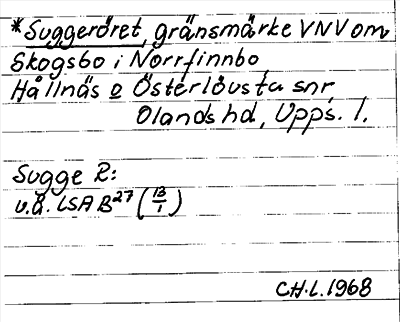 *Suggeröret, gränsmärke VNV om
Skogsbo i Norrfinnbo
Hållnäs o Österlövsta snr,
Olands hd, Upps. l.
Sugge R:
u.å. LSA B²⁷ (13/1)
C.H.L. 1968